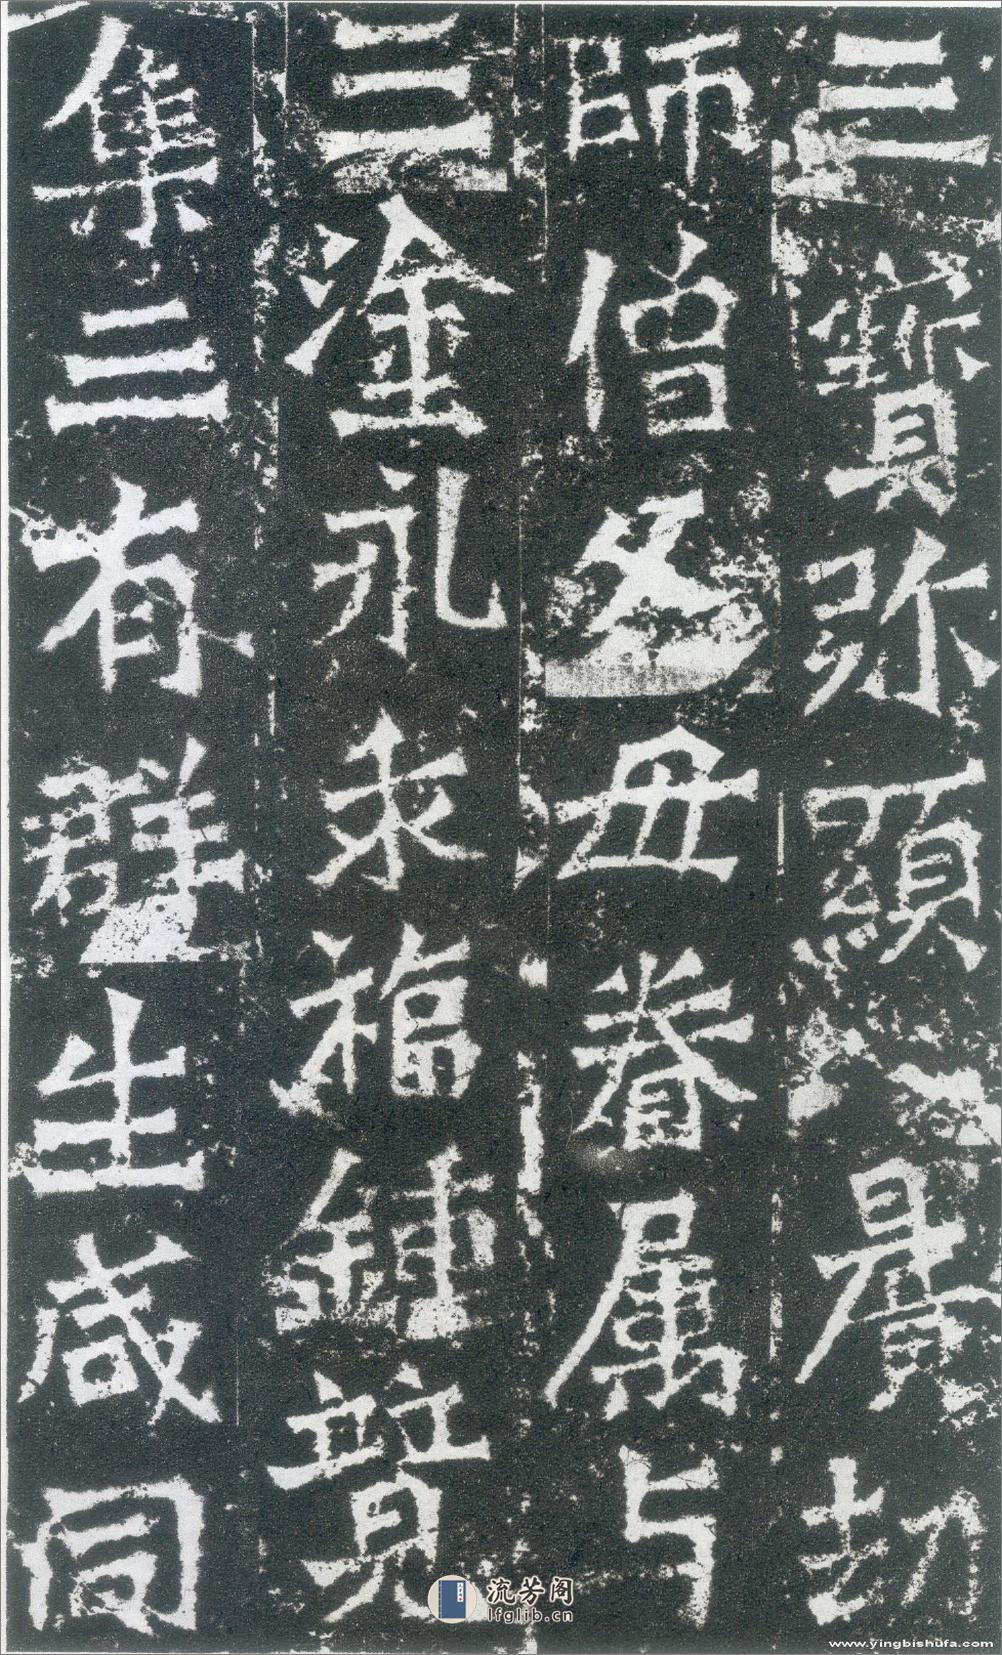 三寶弥顯曠劫
師僧父母眷属与
三塗永乖福鍾竟
集三有群生咸同
流芳阁
lfglib.cn
www.yingbishufa.com